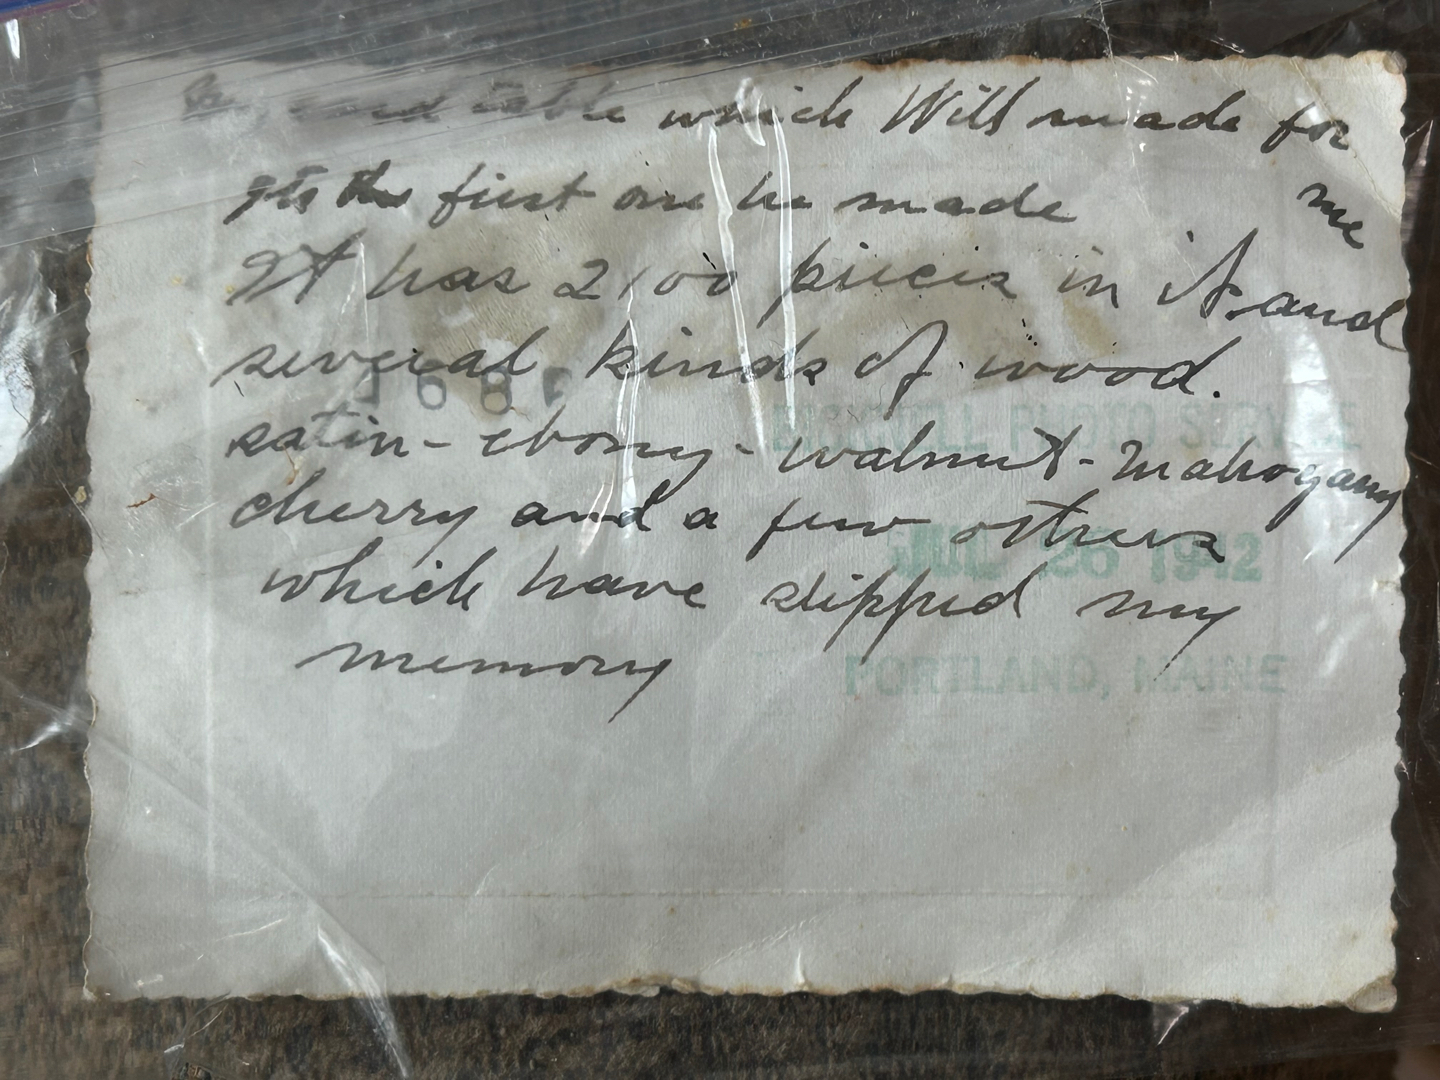 table which Will made for
me
its the first one he made
It has 2100 pieces in it and
several kinds of wood.
satin - ebony - walnut - Mahogany
cherry and a few others
which have slipped my
memory
PHOTO SERVICE
JUL 26 1942
PORTLAND, MAINE